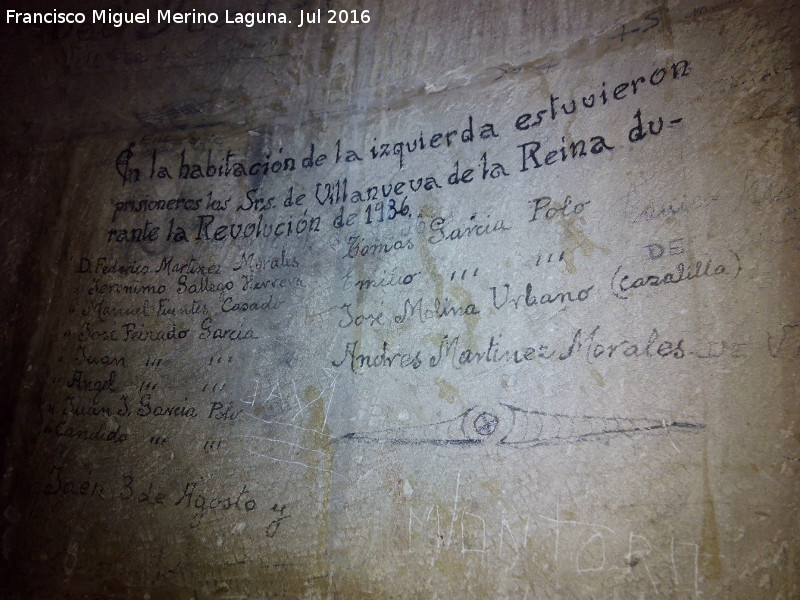 Francisco Miguel Merino Laguna. Jul 2016
En la habitación de la izquierda estuvieron
prisioneros los Srs. de Villanueva de la Reina du-
rante la Revolución de 1936.
D. Federico Martinez Morales
" Jeronimo Gallego Herrera
" Manuel Fuentes Casado
" José Peinado Garcia
" Juan ,,, ,,,
" Angel ,,, ,,,
" Juan J. Garcia Polo
" Candido ,,, ,,,
Tomas Garcia Polo
Emilio ,,, ,,,
José Molina Urbano (cazalilla)
DE
Andres Martinez Morales DE V
Jaén 3 de Agosto y
MONTORO